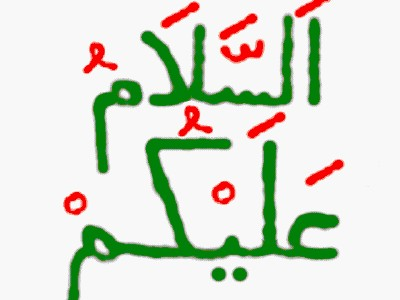 اَلسَّلَامُ
عَلَيْكُمْ